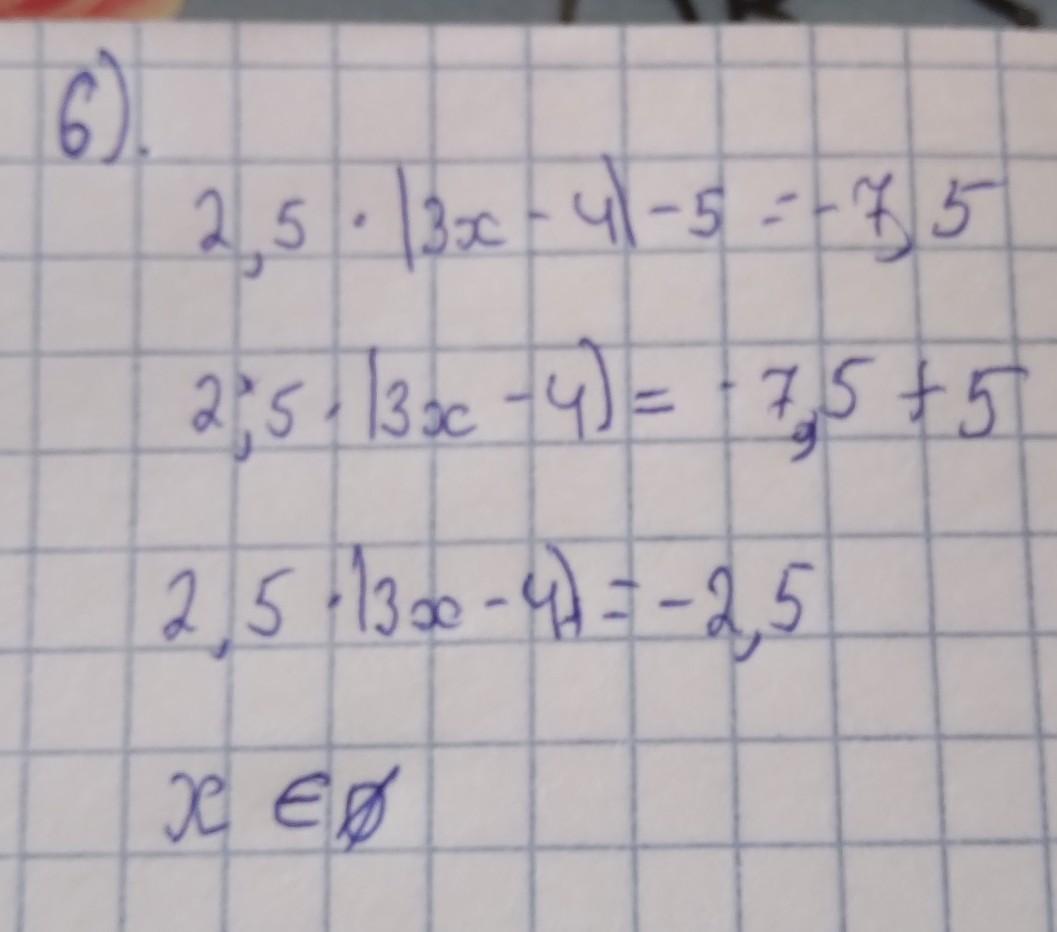 6).
2,5 · |3x - 4| - 5 = -7,5
2,5 · |3x - 4| = -7,5 + 5
2,5 · |3x - 4| = -2,5
x ∈ ∅